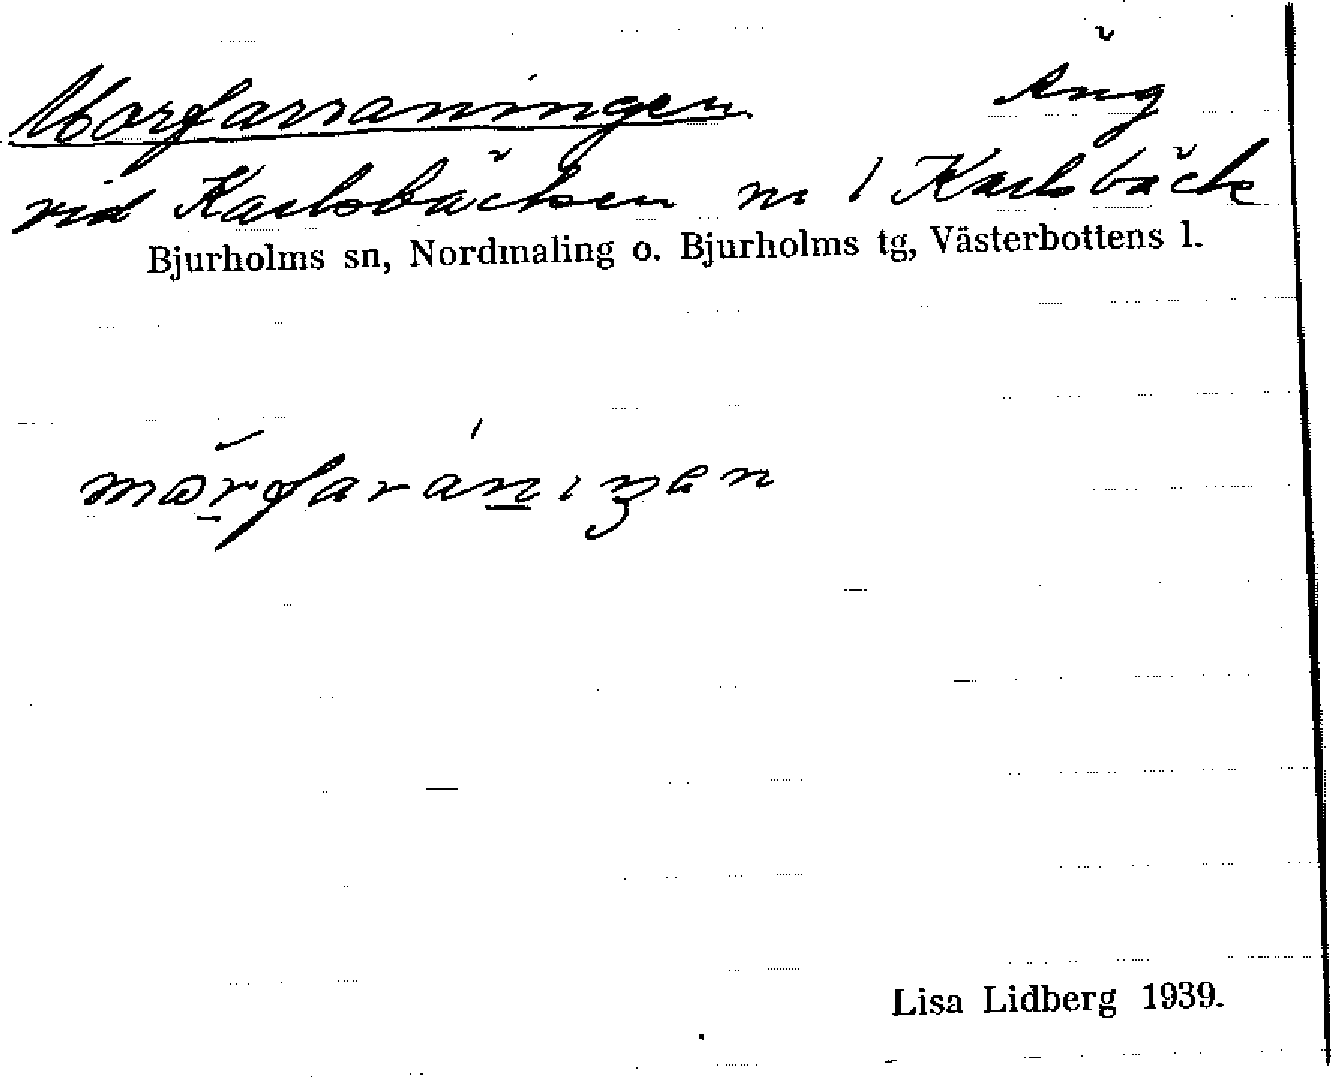 Morfarraningen Äng
vid Karlsbäcken m 1 Karlsbäck
Bjurholms sn, Nordmaling o. Bjurholms tg, Västerbottens l.
Lisa Lidberg 1939.